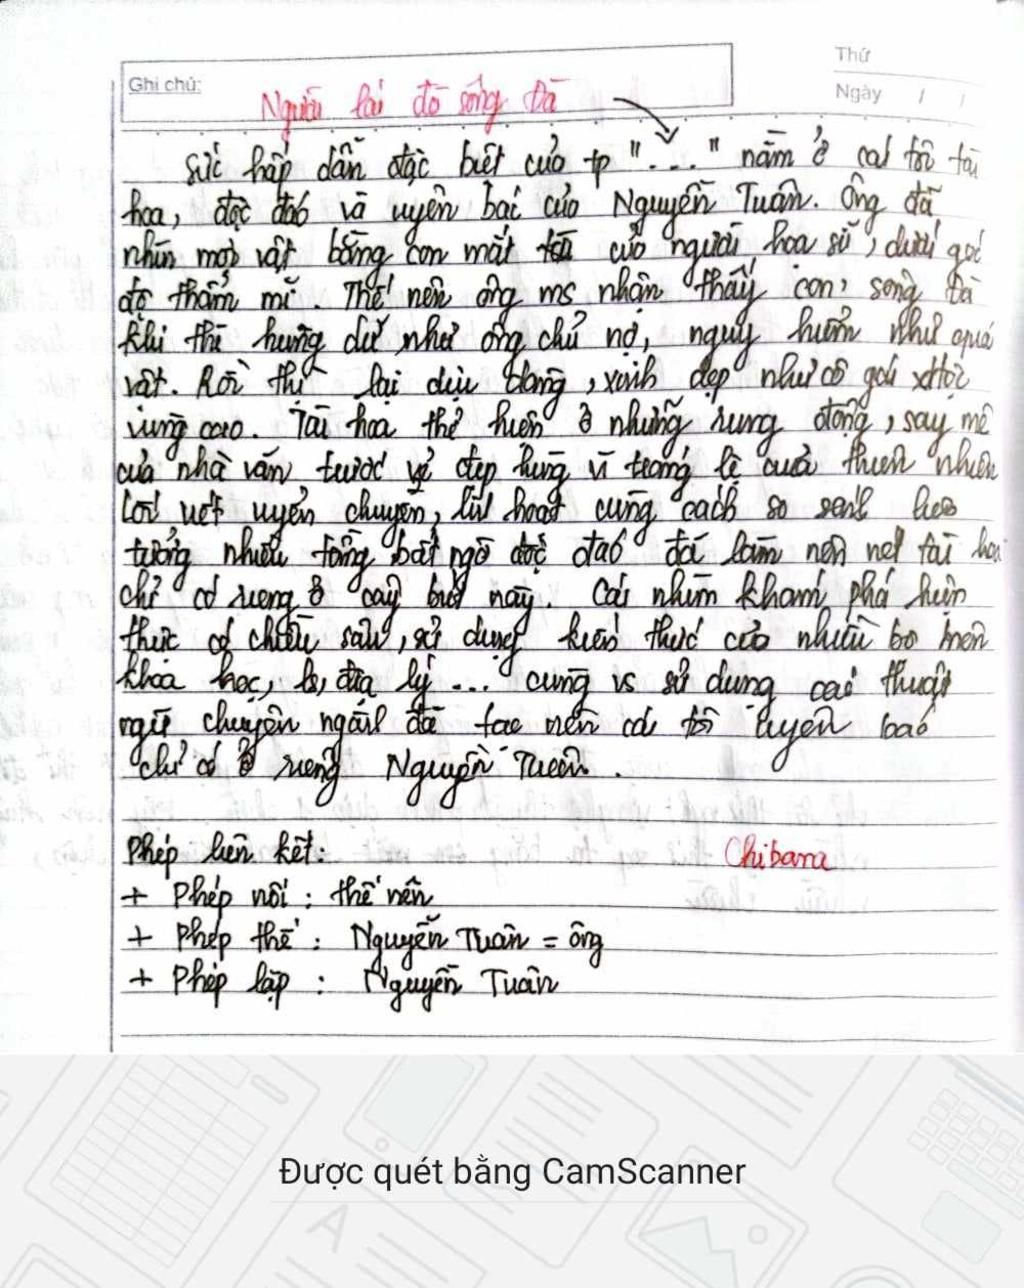 Thứ
Ghi chú:
Ngày / /
Người lái đò sông Đà
sức hấp dẫn đặc biệt của tp "..." nằm ở cái tôi tài
hoa, độc đáo và uyên bác của Nguyễn Tuân. Ông đã
nhìn mọi vật bằng con mắt của người hoạ sĩ, dưới góc
độ thẩm mĩ. Thế nên ông ms nhận thấy con sông Đà
khi thì hung dữ như ông chủ nợ, nguy hiểm như quái
vật. Rồi thì lại dịu dàng, xinh đẹp như cô gái
vùng cao. Tài hoa thể hiện ở những rung động, say mê
của nhà văn trước vẻ đẹp hùng vĩ tráng lệ của thiên nhiên
Lối viết uyển chuyển, linh hoạt cùng cách so sánh liên
tưởng nhiều tầng bất ngờ độc đáo đã làm nên nét tài hoa
chỉ có riêng ở cây bút này. Cái nhìn khám phá hiện
thực có chiều sâu, sử dụng kiến thức của nhiều bộ môn
khoa học, ls, địa lý ... cùng vs sử dụng các thuật
ngữ chuyên ngành đã tạo nên cái tôi uyên bác
chỉ có ở riêng Nguyễn Tuân.
Phép liên kết: Chibana
+ Phép nối : thế nên
+ Phép thế : Nguyễn Tuân = ông
+ Phép lặp : Nguyễn Tuân
Được quét bằng CamScanner